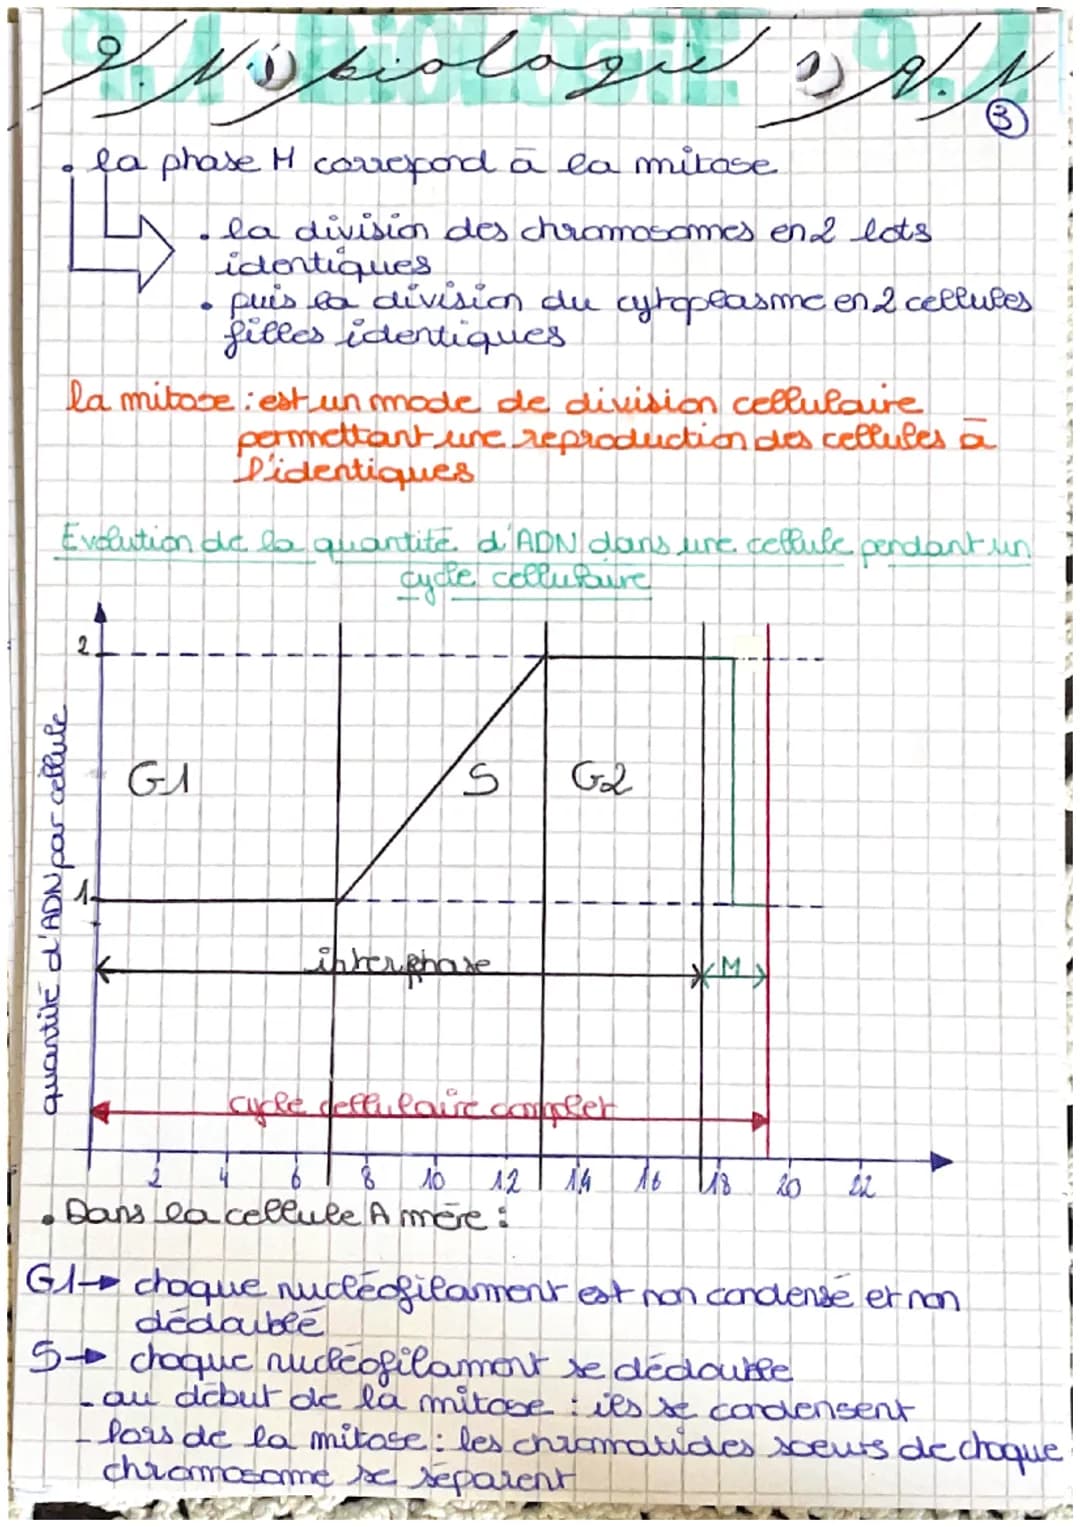 g.N 1) biologie 1) g.N
3
• la phase M correspond à la mitose
• la division des chromosomes en 2 lots
identiques
• puis la division du cytoplasme en 2 cellules
filles identiques
la mitose : est un mode de division cellulaire
permettant une reproduction des cellules à
l'identiques
Evolution de la quantité d'ADN dans une cellule pendant un
cycle cellulaire
quantité d'ADN par cellule
2
G1 S G2
1
interphase M
cycle cellulaire complet
2 4 6 8 10 12 14 16 18 20 22
• Dans la cellule A mère :
G1→ chaque nucléofilament est non condensé et non
dédoublé
S→ chaque nucléofilament se dédouble
- au début de la mitose : ils se condensent
- lors de la mitose : les chromatides sœurs de chaque
chromosome se séparent